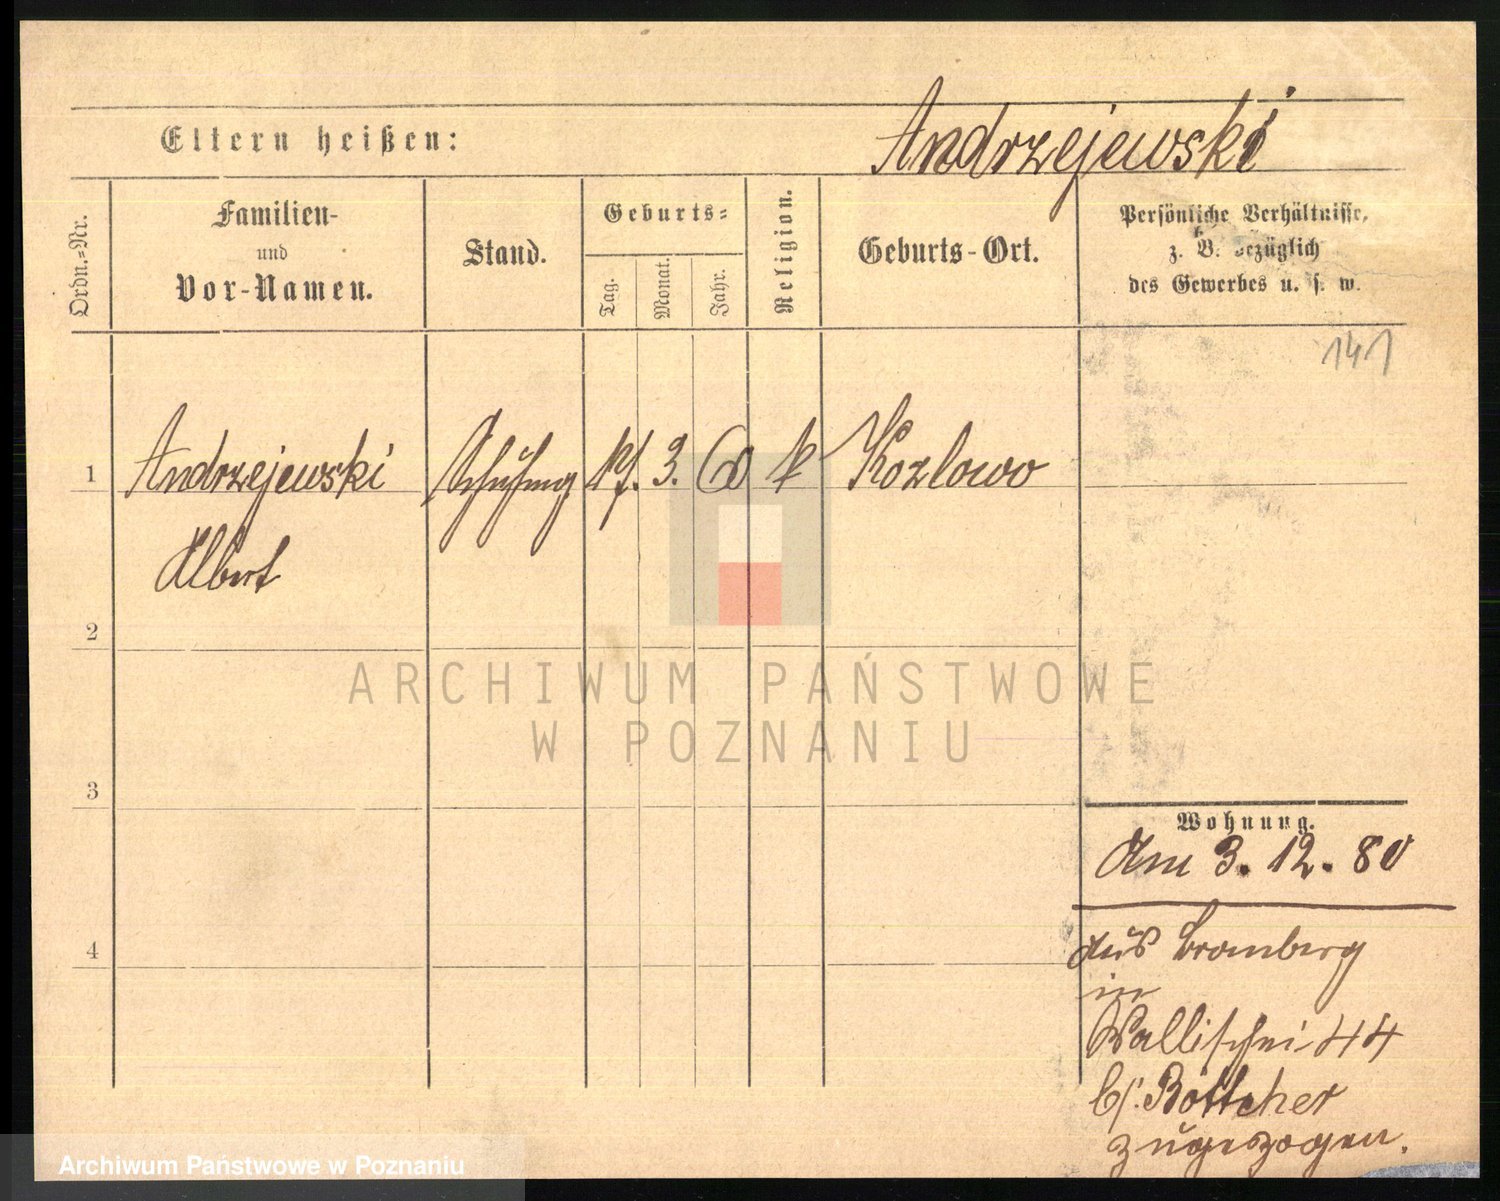 Eltern heißen:
Andrzejewski
Ordn.=Nr.
Familien-
und
Vor-Namen.
Stand.
Geburts=
Tag.
Monat.
Jahr.
Religion.
Geburts-Ort.
Persönliche Verhältnisse,
z. B. bezüglich
des Gewerbes u. s. w.
141
1 Andrzejewski 3. 60 k Kozlowo
Albert
2
3
4
Wohnung.
Am 3. 12. 80
aus Bromberg
in
Wallischei 44
b/. Böttcher
zugezogen.
ARCHIWUM PAŃSTWOWE
W POZNANIU
Archiwum Państwowe w Poznaniu